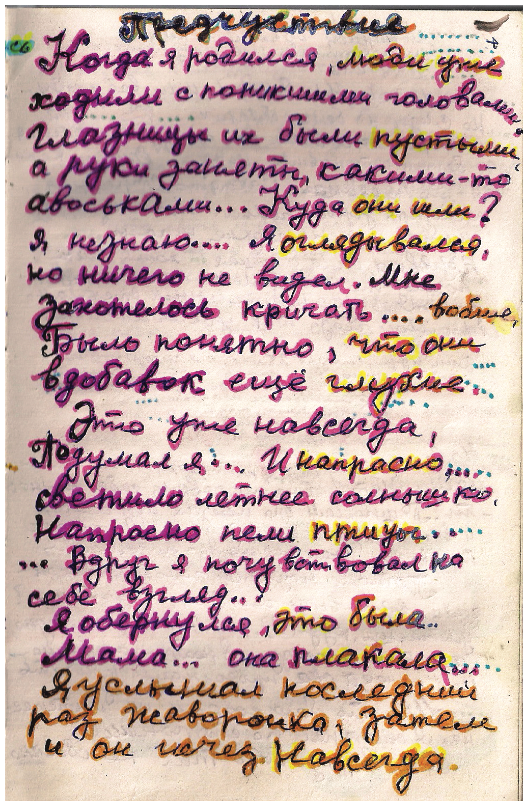 Предчуствие
Когда я родился, люди уже
ходили с поникшими головами,
Глазницы их были пустыми,
а руки заняты, какими-то
авоськами... Куда они шли?
Я, незнаю.... Я оглядывался,
но ничего не видел. Мне
захотелось кричать .... вобще,
Было понятно, что они
вдобавок ещё глухие....
Это уже навсегда,
Подумал я.... И напрасно....
светило летнее солнышко.
Напрасно пели птицы.....
... Вдруг я почувствовал на
себе взгляд...
Я обернулся, это была..
Мама... она плакала....
Я услышал последний
раз жаворонка, затем
и он исчез. Навсегда.